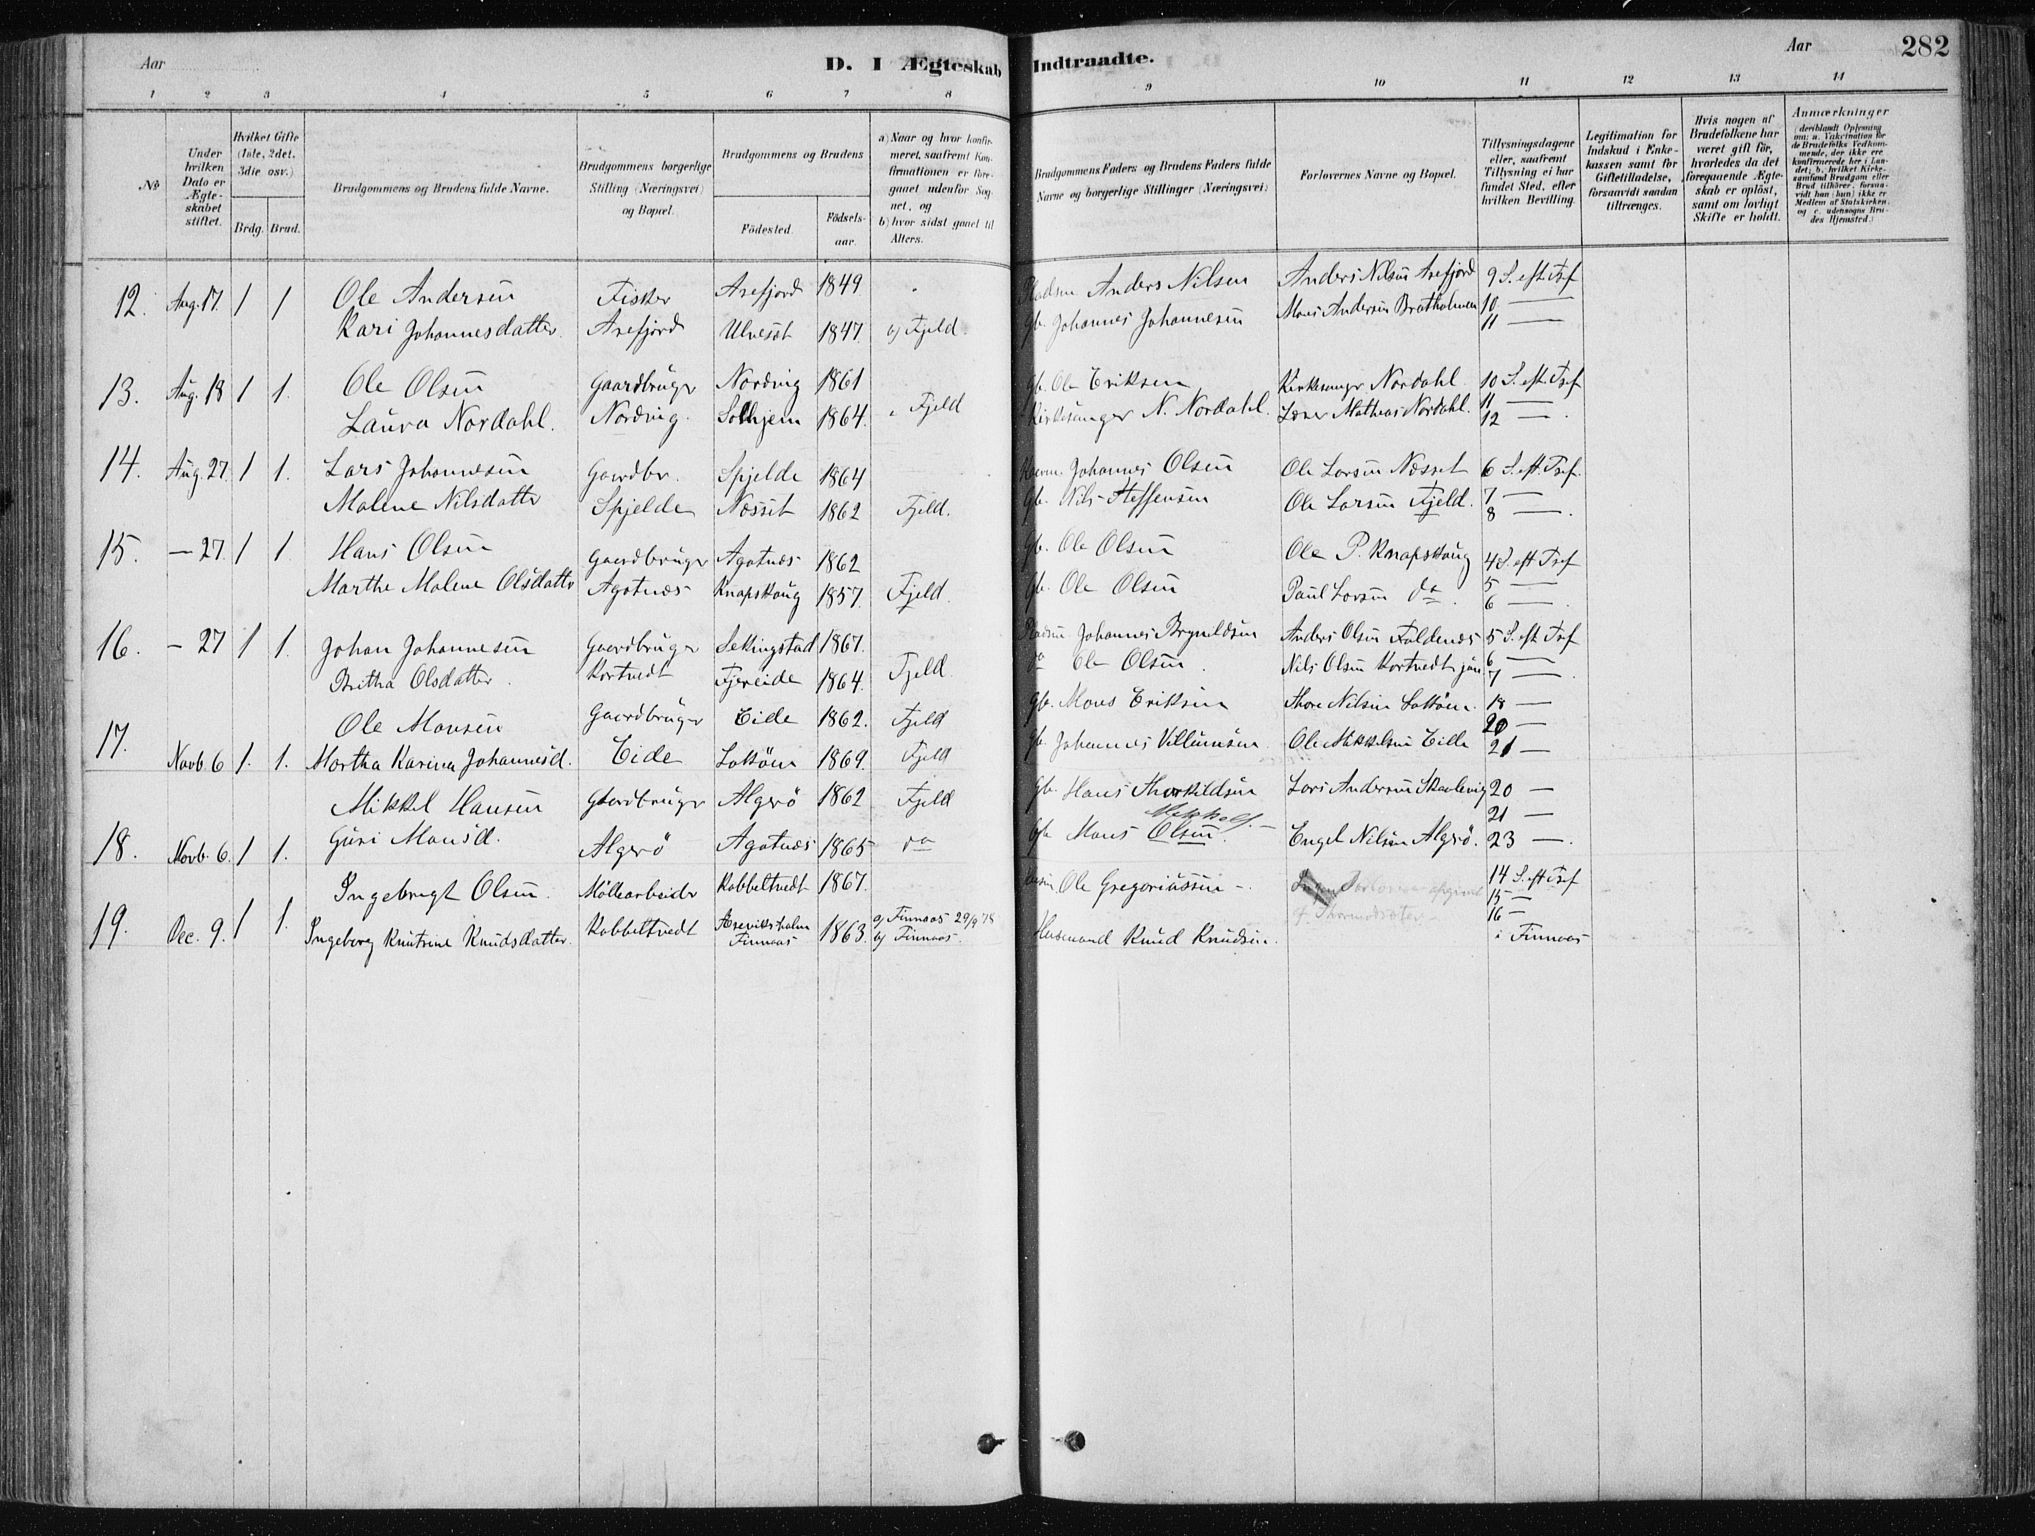 Aar
D. I Ægteskab Indtraadte.
Aar
282
1 2 3 4 5 6 7 8 9 10 11 12 13 14
No
Under hvilken Dato er Ægteskabet stiftet.
Hvilket Gifte (1ste, 2det, 3die osv.)
Brdg. Brud.
Brudgommens og Brudens fulde Navne.
Brudgommens borgerlige Stilling (Næringsvei) og Bopæl.
Brudgommens og Brudens
Födested.
Födselsaar.
a) Naar og hvor konfirmeret, saafremt Konfirmationen er foregaaet udenfor Sognet, og
b) hvor sidst gaaet til Alters.
Brudgommens Faders og Brudens Faders fulde Navne og borgerlige Stillinger (Næringsvei)
Forlovernes Navne og Bopæl.
Tillysningsdagene eller, saafremt Tillysning ei har fundet Sted, efter hvilken Bevilling.
Legitimation for Indskud i Enkekassen samt for Giftetilladelse, forsaavidt saadan tiltrænges.
Hvis nogen af Brudefolkene har været gift för, hvorledes da det foregaaende Ægteskab er oplöst, samt om lovligt Skifte er holdt.
Anmærkninger
(deriblandt Oplysning om: a. Vakcination for de Brudefolks Vedkommende, der ikke ere konfirmerede her i Landet; b. hvilket Kirkesamfund Brudgom eller Brud tilhörer, forsaavidt han (hun) ikke er Medlem af Statskirken, og c. udensogns Brudes Hjemsted.)
12. Aug. 17. 1 1 Ole Andersen Fisker Arefjord 1849 Anders Nilsen Anders Nilsen Arefjord 9 S. eft. Tref
Kari Johannesdatter. Arefjord Ulvesæt 1847. Fjeld. gb. Johannes Johannesen Mons Andersen Bratholmen 10 —
11 —
13. Aug. 18 1 1. Ole Olsen Gaardbruger Nordvig 1861 gb. Ole Eriksen Kirkesanger Nordahl. 10 S. eft. Tref
Laura Nordahl. Nordvig. Solhjem 1864. Fjeld Kirkesanger N. Nordahl. Lærer Mathias Nordahl. 11 —
12 —
14. Aug. 27. 1 1. Lars Johannesen Gaardbr. Spjelde 1864 Johannes Olsen Ole Larsen Næsset 6 S. eft. Tref.
Malene Nilsdatter Spjelde Næsset 1862 Fjeld. gb. Nils Steffensen Ole Larsen Fjeld. 7 —
8 —
15. — 27. 1 1. Hans Olsen Gaardbruger Agotnæs 1862 gb. Ole Olsen Ole P. Knapskoug 4 S. eft Tref
Marthe Malene Olsdatter Agotnæs Knapskoug 1857. Fjeld. gb. Ole Olsen Paul Larsen do. 5 —
6 —
16. — 27 1 1. Johan Johannesen Gaardbruger Sekkingstad 1867. Johannes Bryneldsen Anders Olsen Foldenæs 5 S. eft Tref
Britha Olsdatter. Kortvedt Fjereide 1864. Fjeld. do Ole Olsen. Nils Olsen Kortvedt jun 6 —
7 —
Ole Monsen Gaardbruger Eide 1862. Fjeld gb. Mons Eriksen Thore Nilsen Loköen. 18 —
20 —
17. Novb. 6 1. 1. Martha Karina Johannesd. Eide Loköen 1869. Fjeld gb. Johannes Villumsen. Ole Mikkelsen Eide 21 —
Mikkel Hansen Gaardbruger Algerö 1862 Fjeld Gb. Hans Thorkildsen Lars Andersen Skaalevig 20 —
21 —
18. Novb. 6. 1 1. Guri Monsd. Algerö Agotnæs 1865 do Gb. Mons Olsen. Engel Nilsen Algerö. 23 —
Ingebrigt Olsen. Möllearbeider Kobbeltvedt 1867. Ole Gregoriussen — 14 S. eft Tref
15 —
16 —
19. Dec. 9. 1 1. Ingeborg Knutrine Knudsdatter. Kobbeltvedt Finnaas 1863. a) Finnaas 29/9 78 b) Finnaas. Husmand Knud Knudsen. i Finnaas